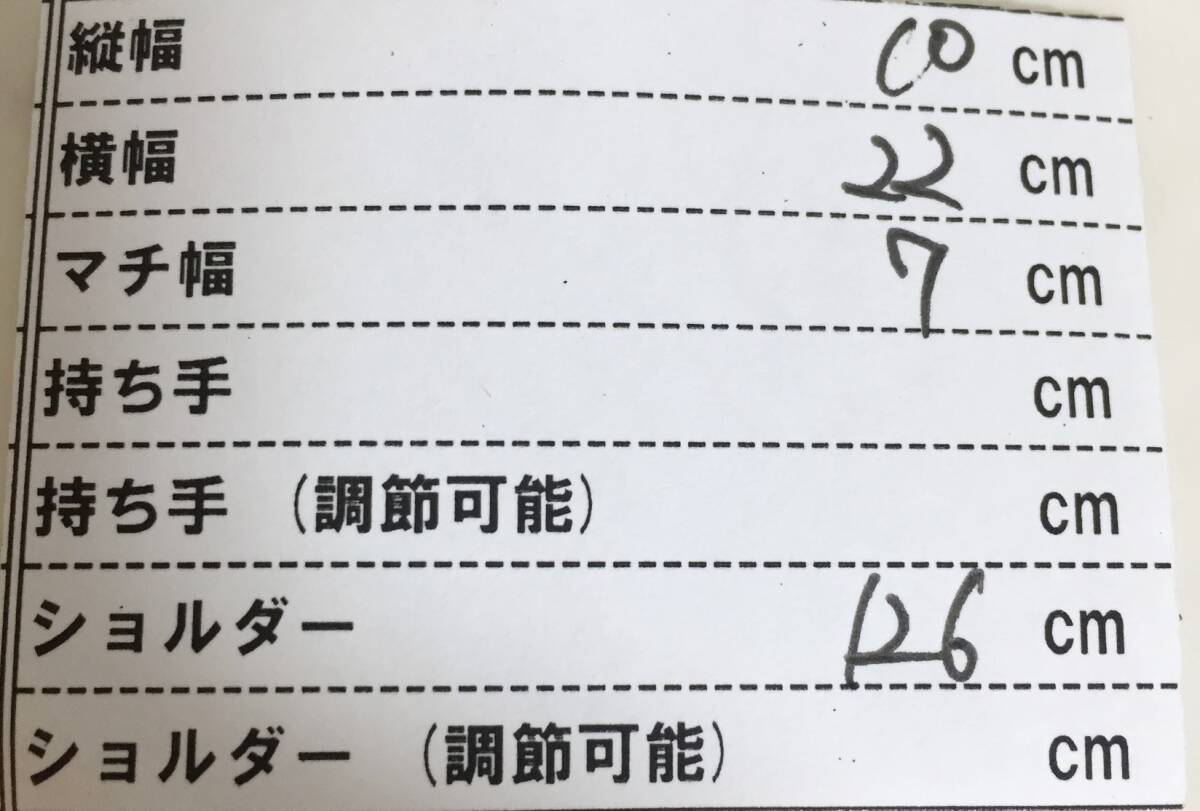 縦幅 10 cm
横幅 22 cm
マチ幅 7 cm
持ち手 cm
持ち手 (調節可能) cm
ショルダー 126 cm
ショルダー (調節可能) cm